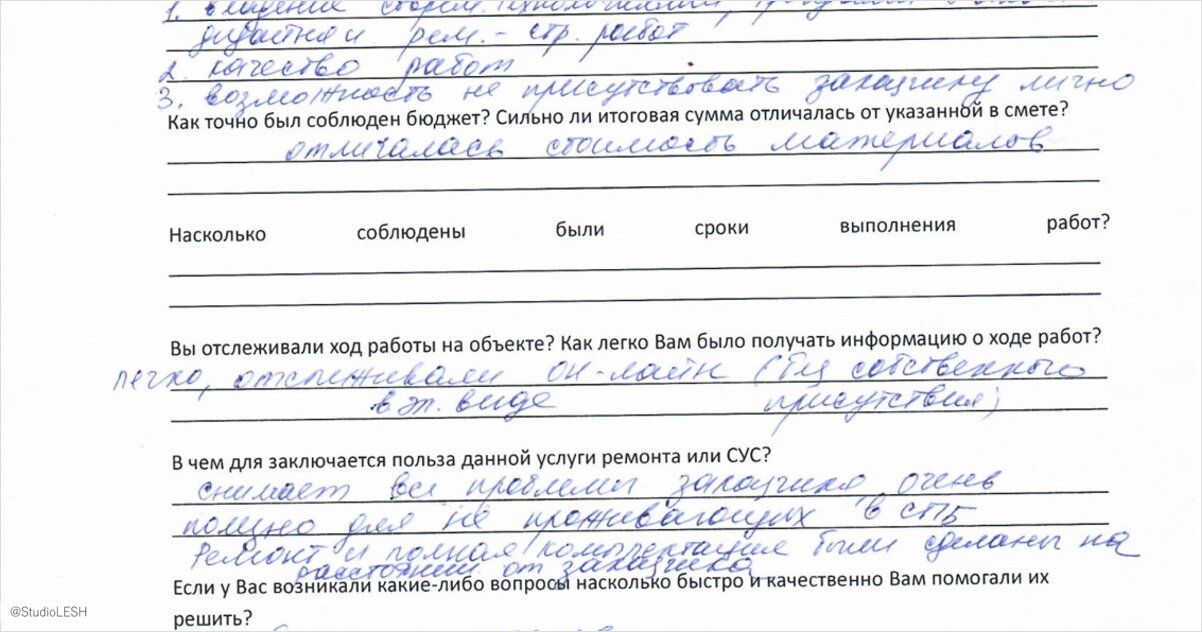 1. владение
дизайна и рем.- стр. работ
2. качество работ
3. возможность не присутствовать заказчику лично
Как точно был соблюден бюджет? Сильно ли итоговая сумма отличалась от указанной в смете?
отличалась стоимость материалов
Насколько соблюдены были сроки выполнения работ?
Вы отслеживали ход работы на объекте? Как легко Вам было получать информацию о ходе работ?
легко, отслеживали он-лайн (без собственного
в эл. виде присутствия)
В чем для заключается польза данной услуги ремонта или СУС?
снимает все проблемы заказчика, очень
полезно для не проживающих в СПБ
Ремонт и полная комплектация были сделаны на
расстоянии от заказчика
Если у Вас возникали какие-либо вопросы насколько быстро и качественно Вам помогали их
решить?
@StudioLESH